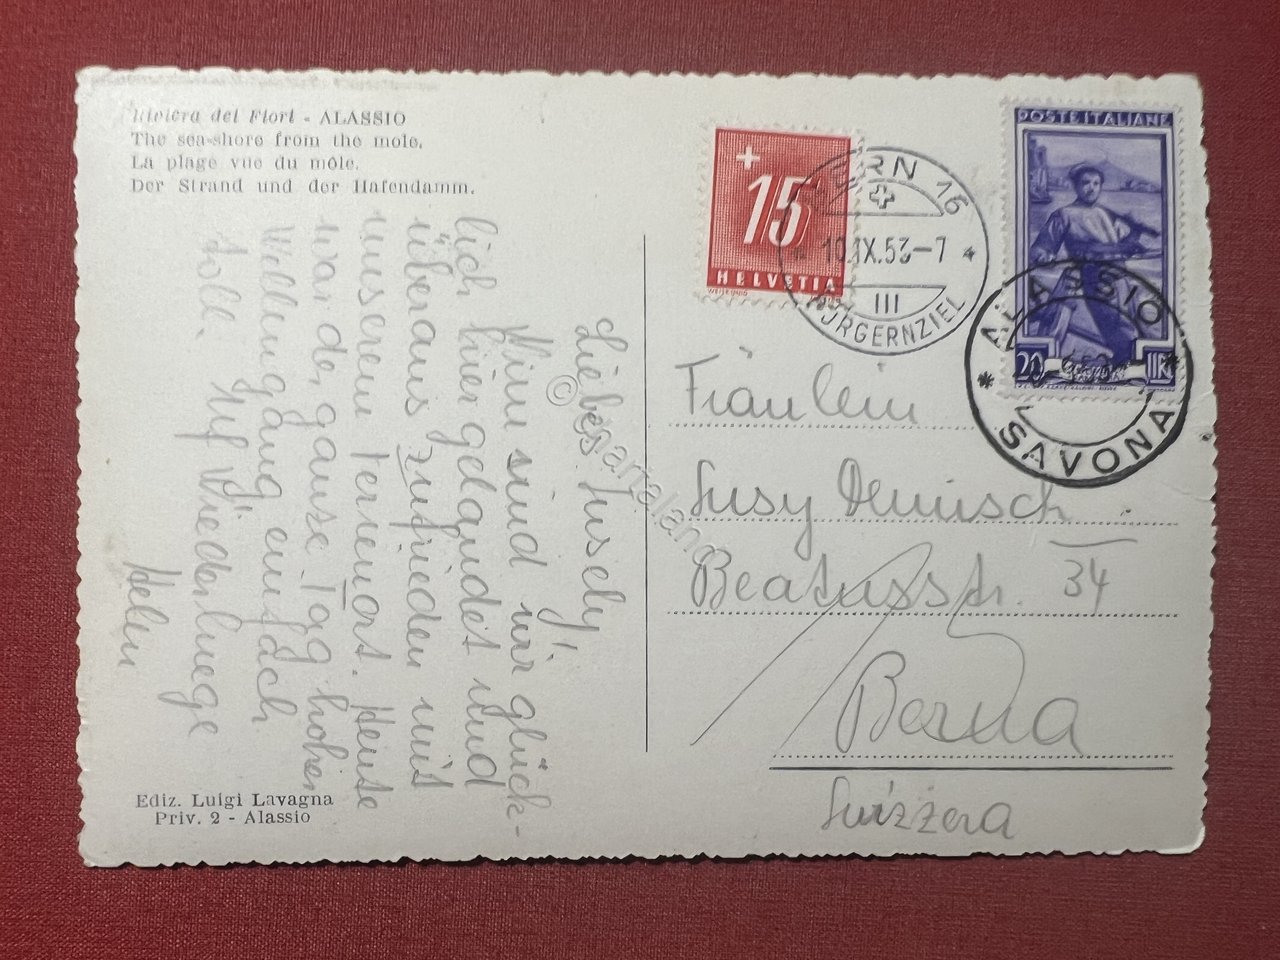 Riviera dei Fiori - ALASSIO
The sea-shore from the mole.
La plage vue du môle.
Der Strand und der Hafendamm.
Liebes Susely!
Nun sind wir glück-
lich hier gelandet und
überaus zufrieden mit
unserem Ferienort. Heute
war den ganze Tag hohen
Wellengang einfach
toll.
Auf Wiederluege
Helen
Ediz. Luigi Lavagna
Priv. 2 - Alassio
+
15
HELVETIA
BERN 16
10.IX.53-7
III
BURGERNZIEL
POSTE ITALIANE
20 LIRE
ALASSIO
* *
SAVONA
Fräulein
Susy
Beatusstr. 34
Berna
Svizzera
©